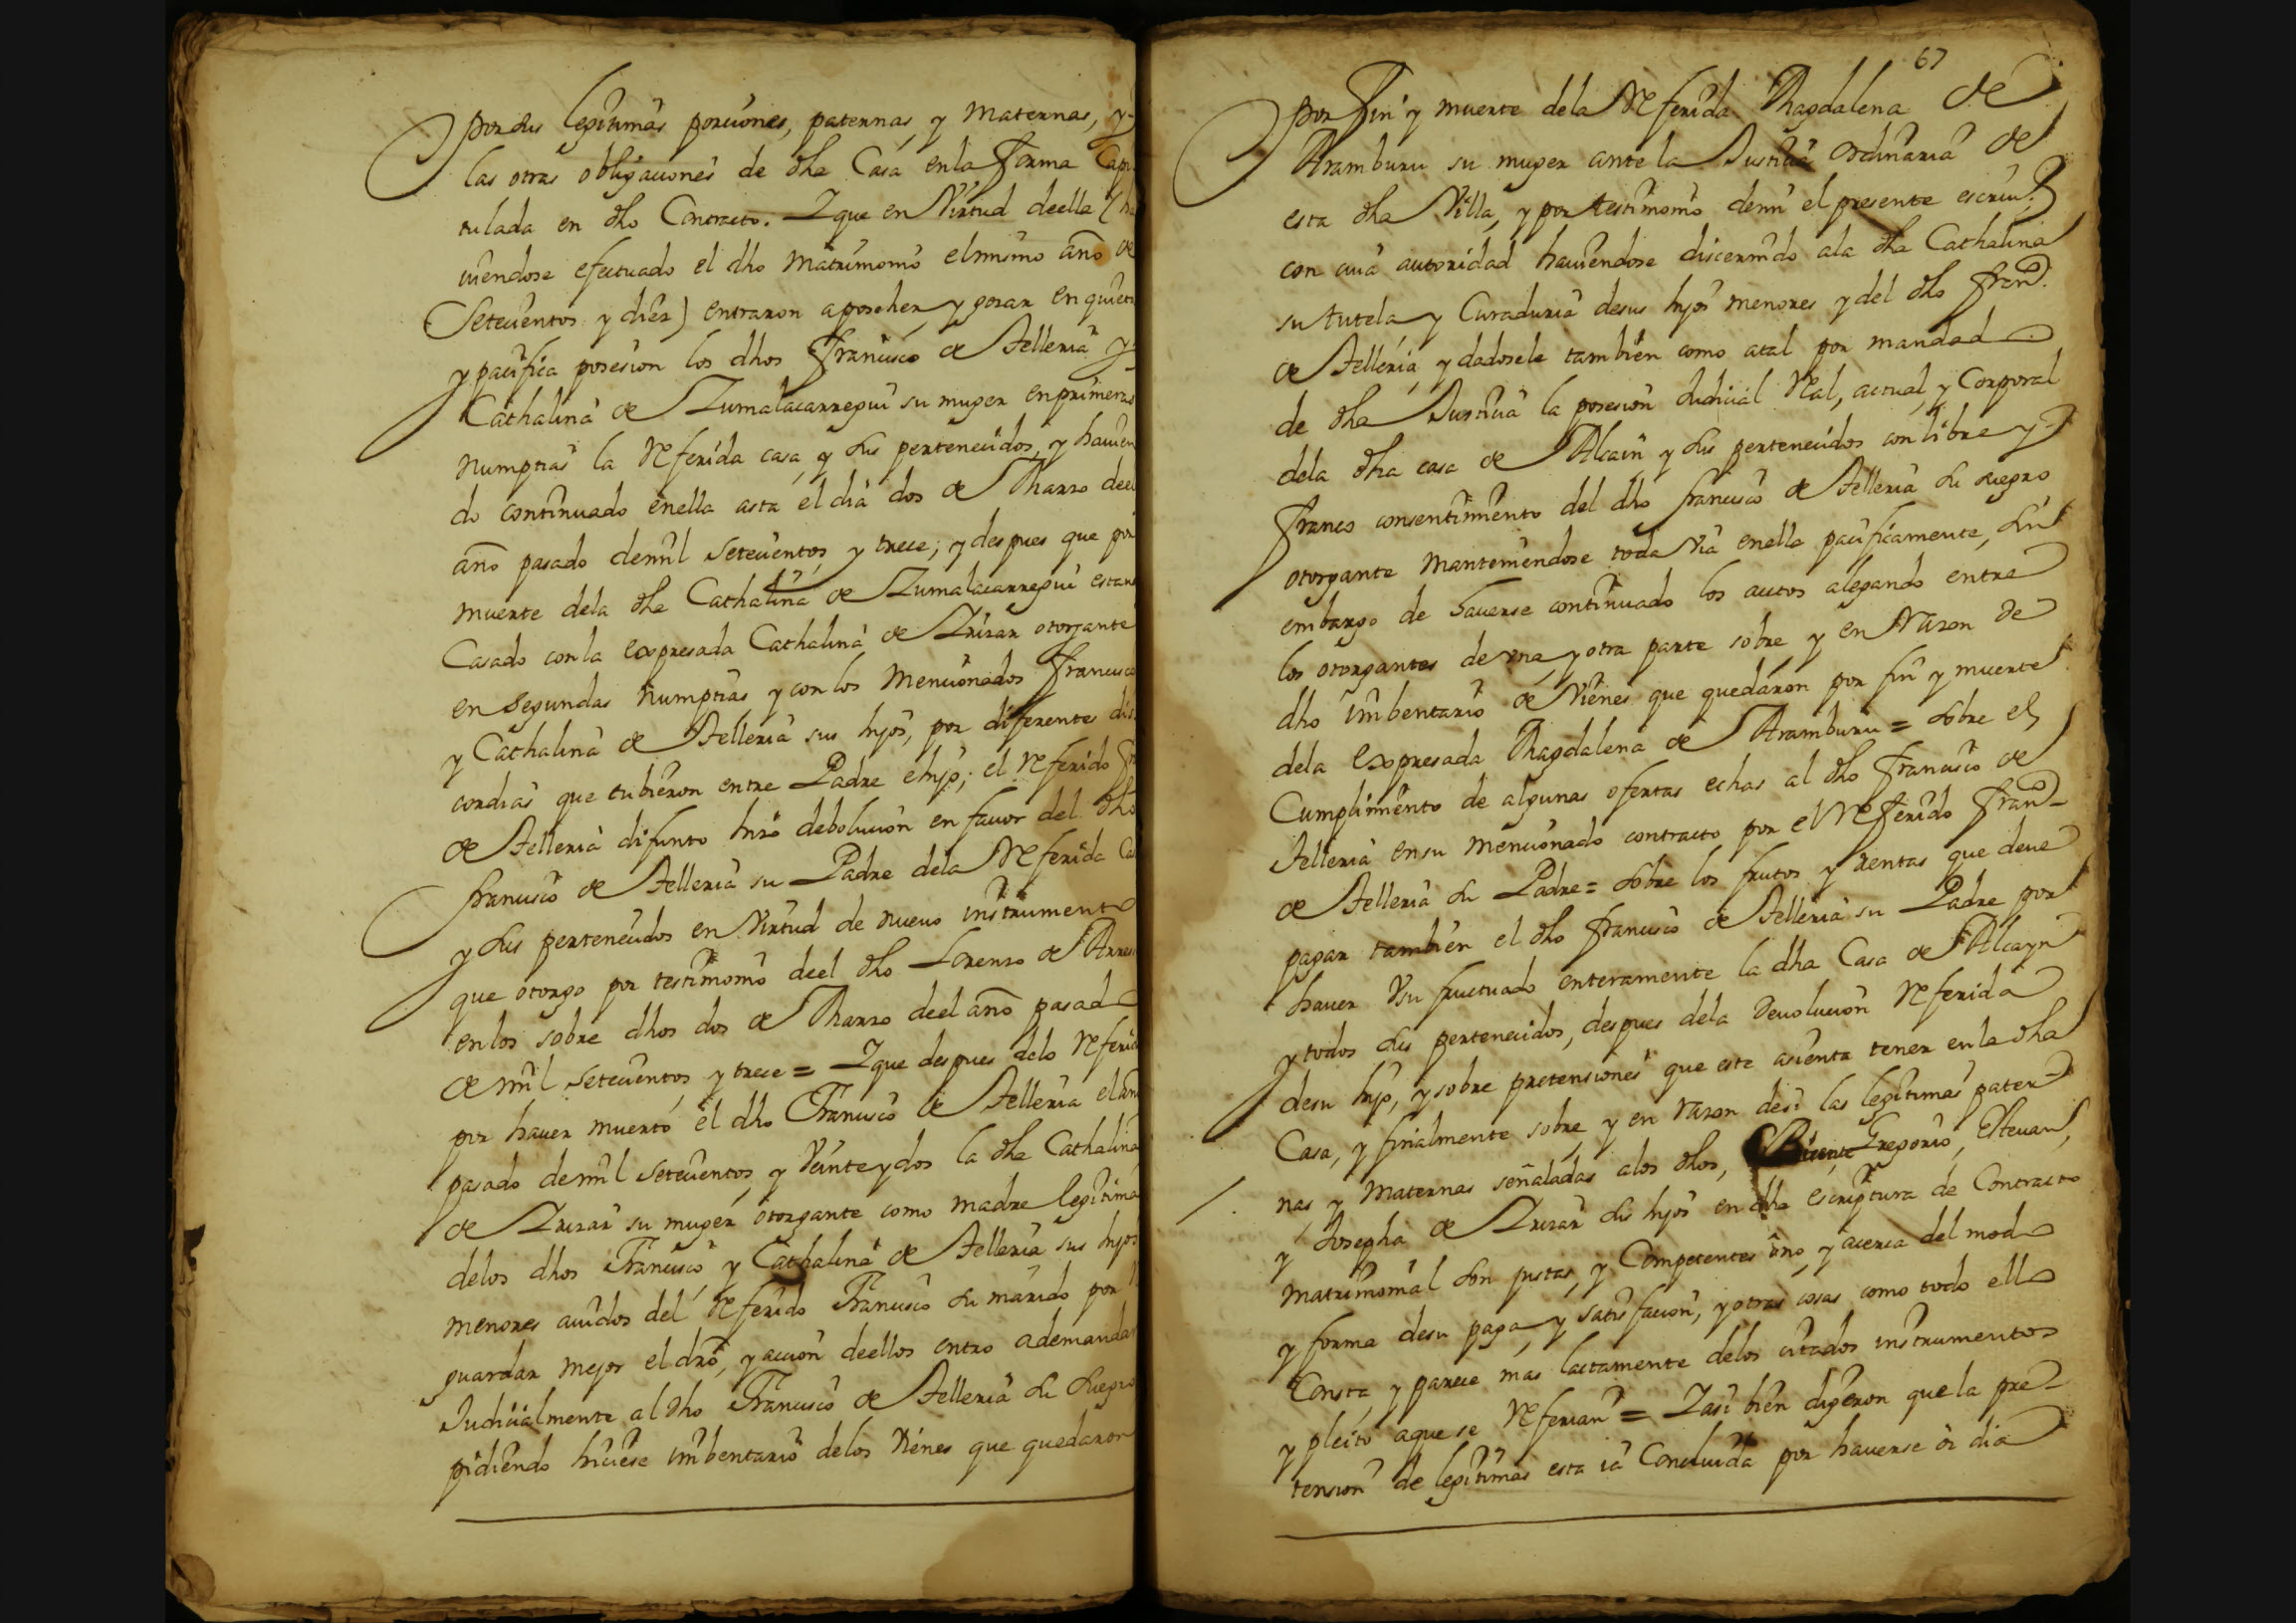 por sus legitimas porciones, paternas, y maternas, y
las otras obligaciones de dha Casa en la forma Capi
tulada en dho Contracto. Y que en Virtud de ella (ha
viendose efectuado el dho matrimonio el mismo año de
Setecientos y diez) entraron a poseher y gozar en quieta
y pacifica posesion los dhos Francisco de Telleria y
Cathalina de Zumalacarregui su muger en primeras
numptias la referida casa, y sus pertenecidos, y havien
do continuado en ella asta el dia dos de Marzo de el
año pasado de mil Setecientos, y trece; y despues que por
muerte de la dha Cathalina de Zumalacarregui estan
Casado con la expresada Cathalina de Irizar otorgante
en segundas numptias y con los mencionados Francisco
y Cathalina de Telleria sus hijos, por diferentes dis
cordias que tubieron entre Padre e hijo; el referido fra
de Telleria difunto hizo debolucion en favor del dho
francisco de Telleria su Padre de la referida Cas
y sus pertenecidos en Virtud de nuevo instrumento
que otorgo por testimonio de el dho Lorenzo de Arres
en los sobre dhos dos de Marzo de el año pasado
de mil Setecientos, y trece = Y que despues de lo referid
por haver muerto el dho Francisco de Telleria el año
pasado de mil Setecientos, y Veinte y dos la dha Cathalina
de Irizar su muger otorgante como madre legitima
de los dhos Francisco, y Cathalina de Telleria sus hijos
menores avidos del referido Francisco su marido por
guardar mejor el dro, y accion de ellos entro a demandar
Judicialmente al dho Francisco de Telleria su suegro
pidiendo hiciese imbentario de los Vienes que quedaron
67
por Fin y muerte de la referida Magdalena de
Aramburu su muger ante la Justicia ordinaria de
esta dha Villa, y por testimonio de mi el presente escriv.
con cuia autoridad haviendose discernido a la dha Cathalina
su tutela, y Curaduria de sus hijos menores y del dho fran.
de Telleria, y dadosele tambien como a tal por mandado
de dha Justicia la posesion Judicial Real, actual, y Corporal
de la dha casa de Alcain y sus pertenecidos con libre y
franco consentimiento del dho francisco de Telleria su suegro
otorgante manteniendose toda via en ella pacificamente, sin
embargo de haverse continuado los autos alegando entre
los otorgantes de una, y otra parte sobre y en Razon de
dho imbentario de Vienes que quedaron por fin y muerte
de la expresada Magdalena de Aramburu = sobre el
Cumplimiento de algunas ofertas echas al dho Francisco de
Telleria en su mencionado contracto por el referido fran.
de Telleria su Padre = sobre los frutos y rentas que deve
pagar tambien el dho francisco de Telleria su Padre por
haver Usu fructuado enteramente la dha Casa de Alcayn
y todos sus pertenecidos, despues de la Devolucion referida
de su hijo, y sobre pretensiones que este asienta tener en la dha
Casa, y finalmente sobre, y en razon de si las legitimas pater
nas y maternas señaladas a los dhos, Gregorio, Estevan,
y Josepha de Irizar sus hijos en dha escriptura de Contracto
matrimonial son justas, y Competentes ono, y acerca del modo
y forma de su paga, y satisfacion, y otras cosas como todo ello
Consta, y parece mas lactamente de los citados instrumentos
y pleito a que se referian = Y asi bien digeron que la pre
tension de legitimas esta ia Concluida por haverse oi dia